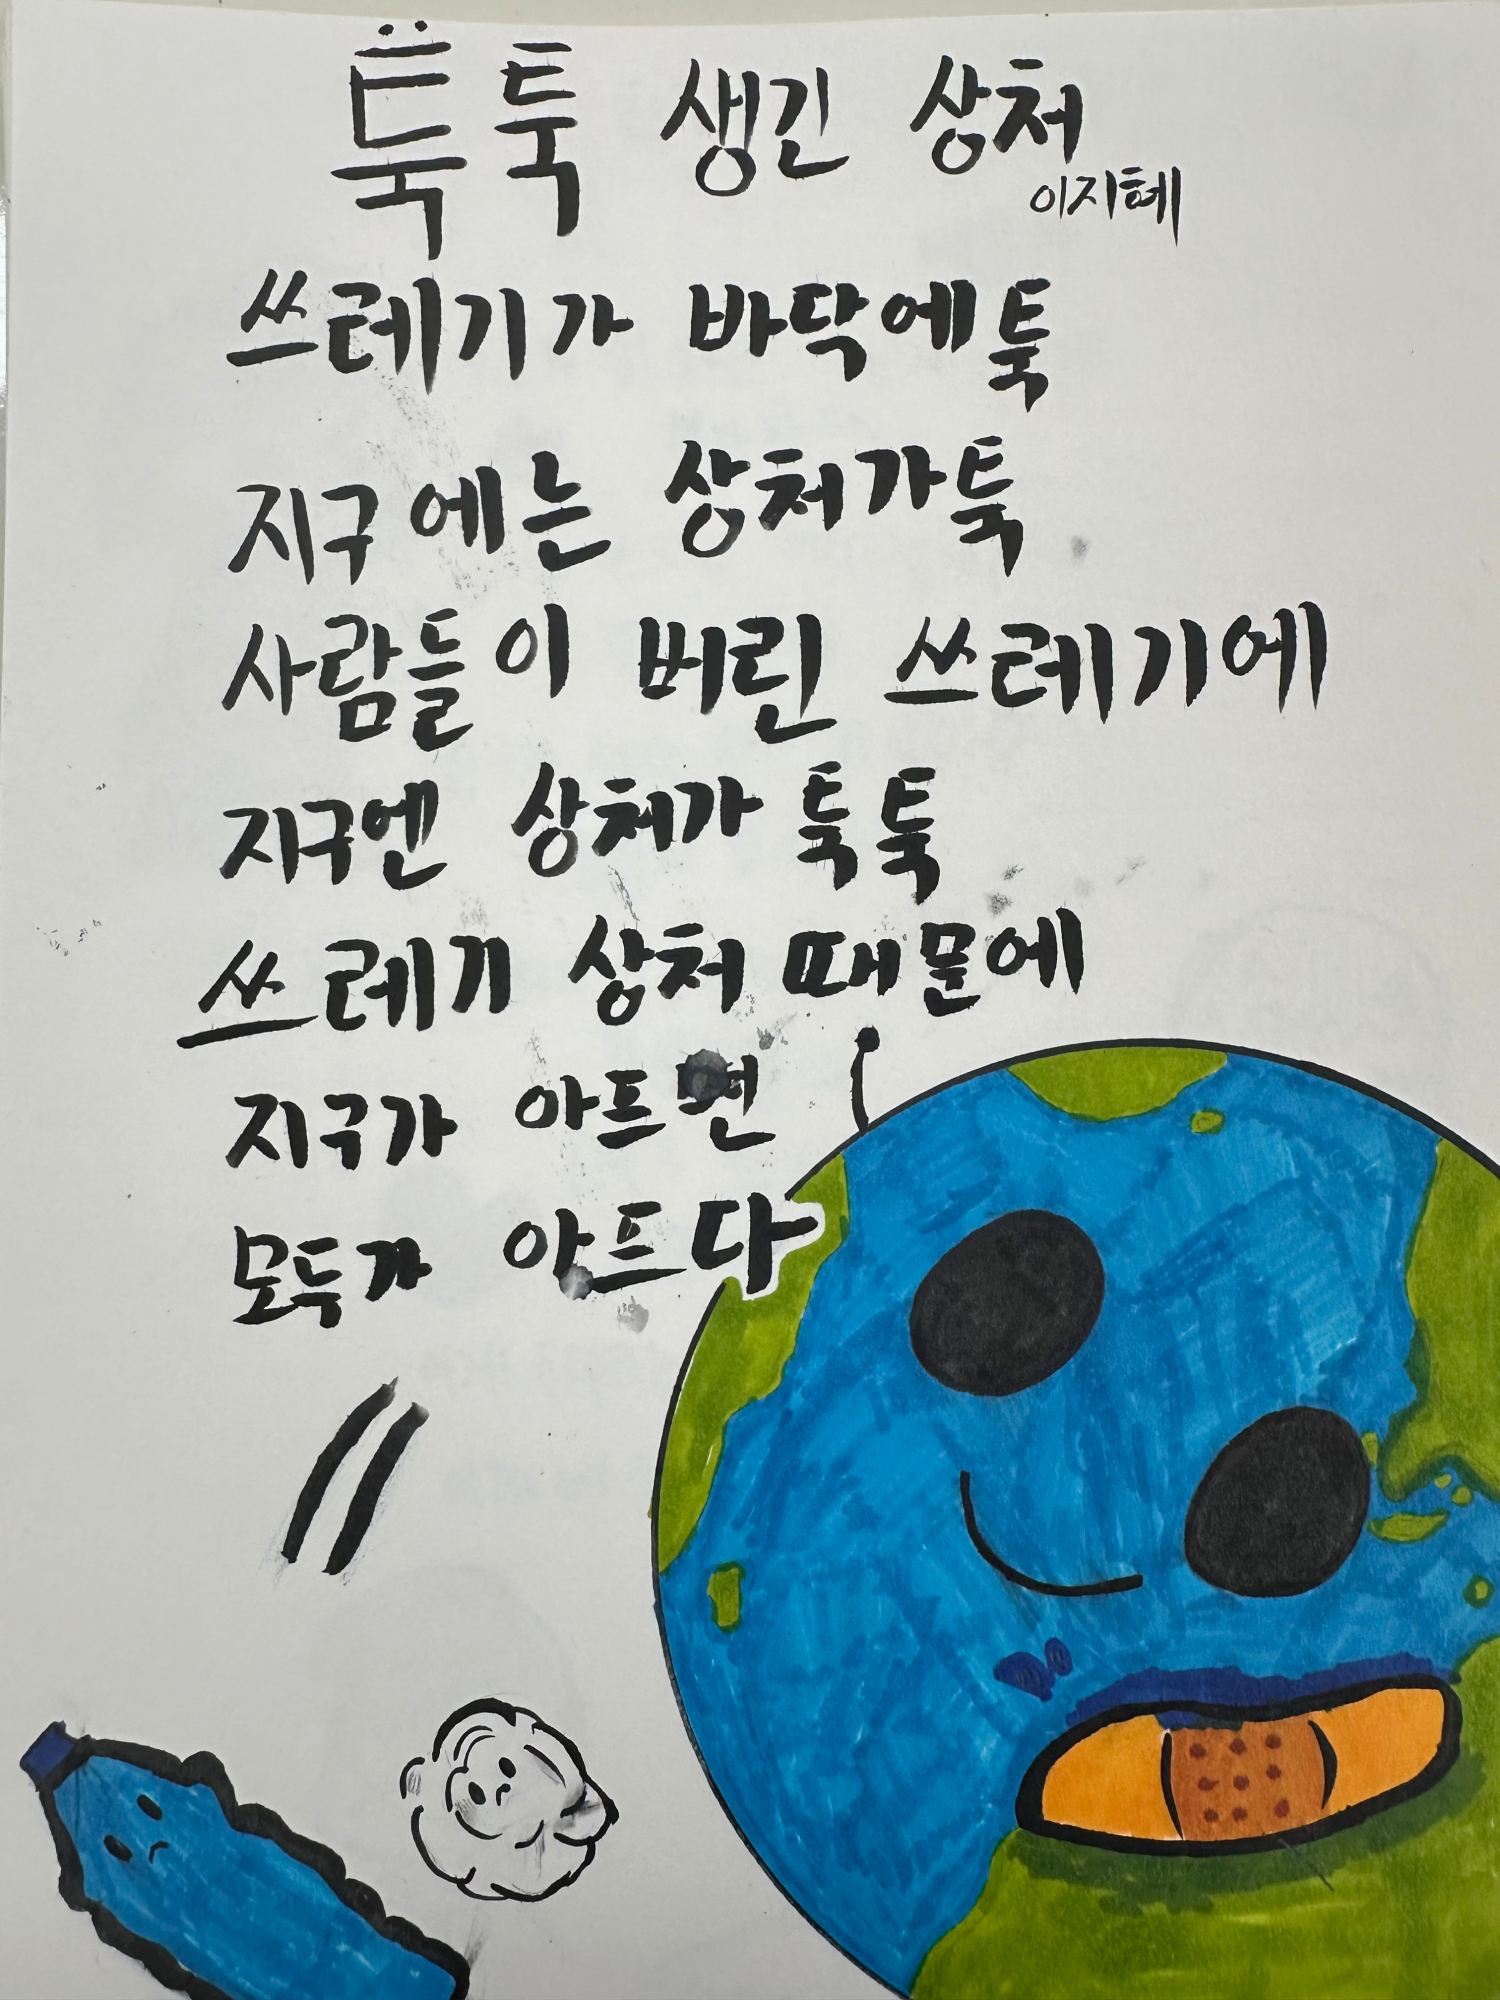 툭툭 생긴 상처
이지혜
쓰레기가 바닥에툭
지구에는 상처가툭
사람들이 버린 쓰레기에
지구엔 상처가 툭툭
쓰레기 상처 때문에
지구가 아프면
모두가 아프다